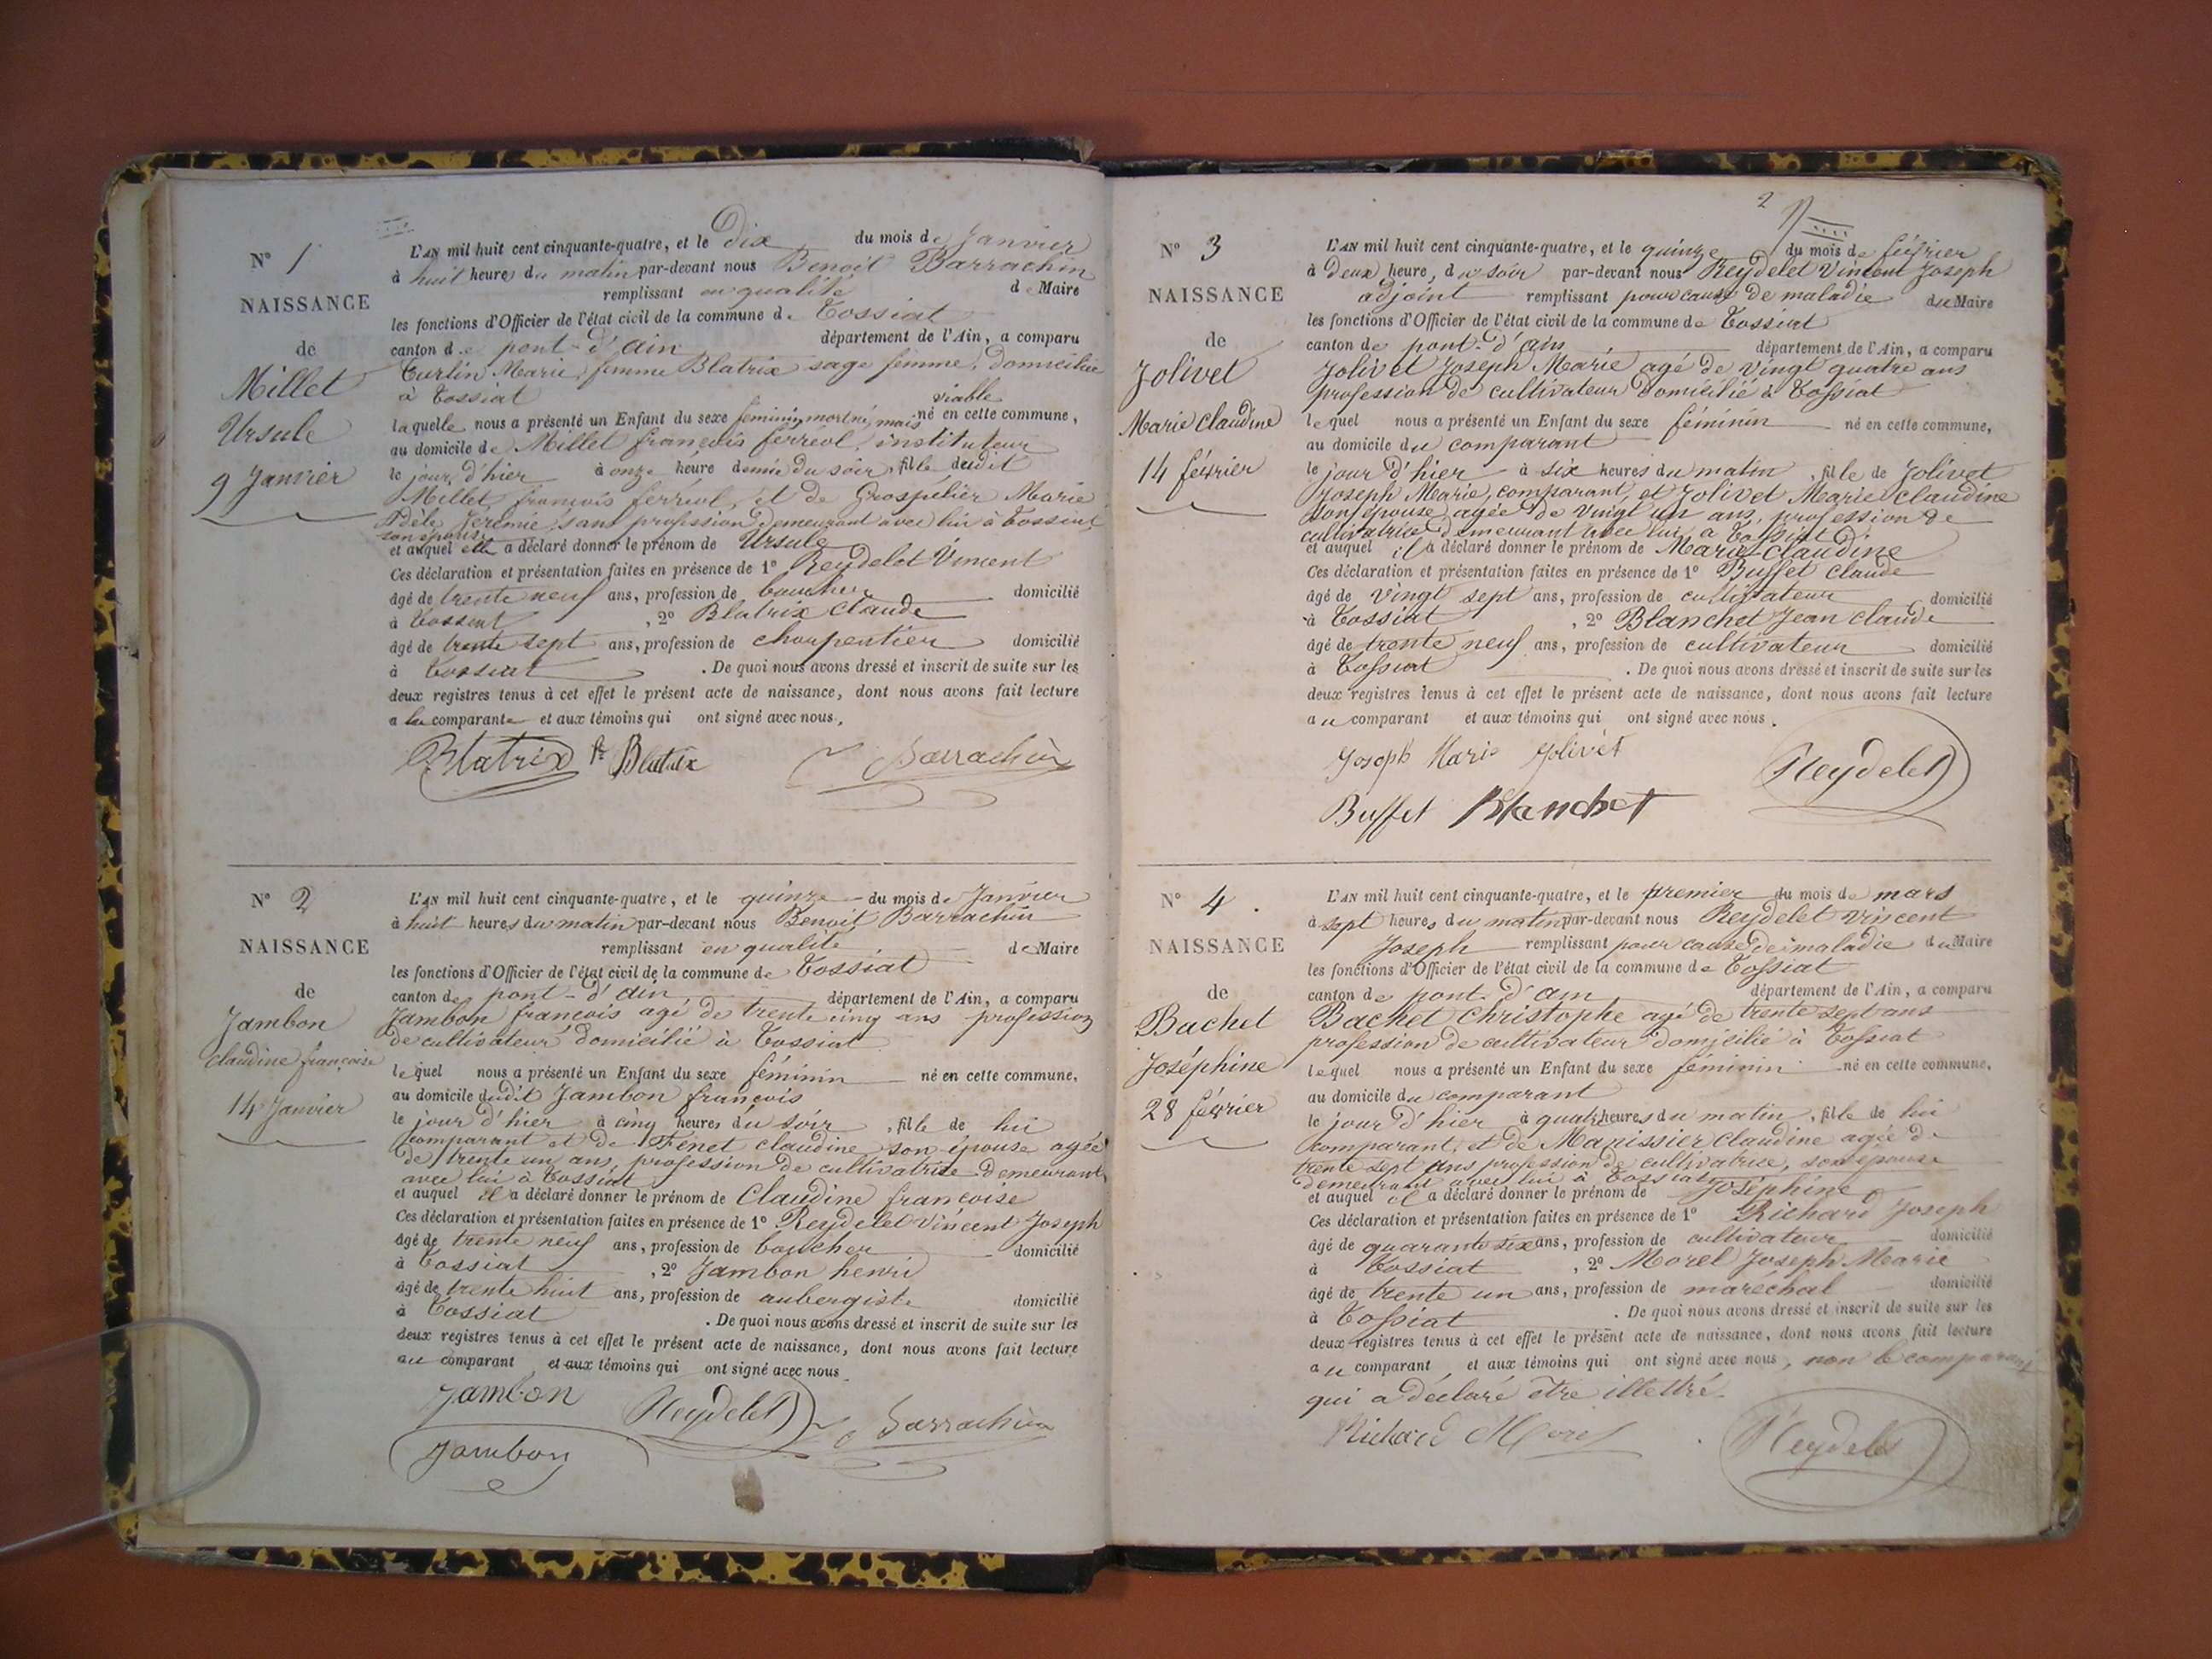 N° 1
NAISSANCE
de
Millet
Ursule
9 Janvier
L'AN mil huit cent cinquante-quatre, et le Dix du mois de Janvier
à huit heures du matin par-devant nous Benoit Barrachin
remplissant en qualité de Maire
les fonctions d'Officier de l'état civil de la commune de Tossiat
canton de pont-d'ain département de l'Ain, a comparu
Marie, femme Blatrix sage femme, domiciliée
à Tossiat
laquelle nous a présenté un Enfant du sexe féminin, mort né, mais viable né en cette commune,
au domicile de Millet françois ferréol, instituteur
le jour d'hier à onze heure demie du soir, fille dudit
Millet françois ferréol, et de Grospélier Marie
Adèle Jérémie, sans profession demeurant avec lui à Tossiat
son épouse
et auquel elle a déclaré donner le prénom de Ursule
Ces déclaration et présentation faites en présence de 1° Reydelet Vincent
âgé de trente neuf ans, profession de boucher domicilié
à Tossiat, 2° Blatrix Claude
âgé de trente sept ans, profession de charpentier domicilié
à Tossiat. De quoi nous avons dressé et inscrit de suite sur les
deux registres tenus à cet effet le présent acte de naissance, dont nous avons fait lecture
a la comparante et aux témoins qui ont signé avec nous.
Blatrix Blatrix Barrachin
N° 2
NAISSANCE
de
Jambon
Claudine françoise
14 Janvier
L'AN mil huit cent cinquante-quatre, et le quinze du mois de Janvier
à huit heures du matin par-devant nous Benoit Barrachin
remplissant en qualité de Maire
les fonctions d'Officier de l'état civil de la commune de Tossiat
canton de pont-d'ain département de l'Ain, a comparu
Jambon françois agé de trente cinq ans profession
de cultivateur domicilié à Tossiat
lequel nous a présenté un Enfant du sexe féminin né en cette commune,
au domicile dudit Jambon françois
le jour d'hier à cinq heures du soir, fille de lui
comparant et de Fenet claudine son épouse agée
de trente un ans, profession de cultivatrice demeurant
avec lui à Tossiat
et auquel il a déclaré donner le prénom de Claudine françoise
Ces déclaration et présentation faites en présence de 1° Reydelet Vincent Joseph
âgé de trente neuf ans, profession de boucher domicilié
à Tossiat, 2° Jambon henri
âgé de trente huit ans, profession de aubergiste domicilié
à Tossiat. De quoi nous avons dressé et inscrit de suite sur les
deux registres tenus à cet effet le présent acte de naissance, dont nous avons fait lecture
au comparant et aux témoins qui ont signé avec nous
Jambon Reydelet Barrachin
Jambon
2
N° 3
NAISSANCE
de
Jolivet
Marie Claudine
14 février
L'AN mil huit cent cinquante-quatre, et le quinze du mois de février
à Deux heure, du soir par-devant nous Reydelet Vincent Joseph
adjoint remplissant pour cause de maladie du Maire
les fonctions d'Officier de l'état civil de la commune de Tossiat
canton de pont-d'ain département de l'Ain, a comparu
Jolivet Joseph Marie agé de vingt quatre ans
profession de cultivateur domicilié à Tossiat
lequel nous a présenté un Enfant du sexe féminin né en cette commune,
au domicile du comparant
le jour d'hier à six heures du matin, fille de Jolivet
Joseph Marie, comparant, et Jolivet Marie claudine
son épouse, agée de vingt un ans, profession de
cultivatrice demeurant avec lui à Tossiat
et auquel il a déclaré donner le prénom de Marie-Claudine
Ces déclaration et présentation faites en présence de 1° Buffet claude
âgé de vingt sept ans, profession de cultivateur domicilié
à Tossiat, 2° Blanchet Jean claude
âgé de trente neuf ans, profession de cultivateur domicilié
à Tossiat. De quoi nous avons dressé et inscrit de suite sur les
deux registres tenus à cet effet le présent acte de naissance, dont nous avons fait lecture
au comparant et aux témoins qui ont signé avec nous.
Joseph Marie Jolivet Reydelet
Buffet Blanchet
N° 4.
NAISSANCE
de
Bachet
Joséphine
28 février
L'AN mil huit cent cinquante-quatre, et le premier du mois de mars
à sept heures du matin par-devant nous Reydelet Vincent
Joseph remplissant pour cause de maladie du Maire
les fonctions d'Officier de l'état civil de la commune de Tossiat
canton de pont-d'ain département de l'Ain, a comparu
Bachet Christophe agé de trente sept ans
profession de cultivateur domicilié à Tossiat
lequel nous a présenté un Enfant du sexe féminin né en cette commune,
au domicile du comparant
le jour d'hier à quatre heures du matin, fille de lui
comparant, et de Manissier Claudine agée de
trente sept ans profession de cultivatrice, son épouse
demeurant avec lui à Tossiat
et auquel il a déclaré donner le prénom de Joséphine
Ces déclaration et présentation faites en présence de 1° Richard Joseph
âgé de quarante six ans, profession de cultivateur domicilié
à Tossiat, 2° Morel Joseph Marie
âgé de trente un ans, profession de maréchal domicilié
à Tossiat. De quoi nous avons dressé et inscrit de suite sur les
deux registres tenus à cet effet le présent acte de naissance, dont nous avons fait lecture
au comparant et aux témoins qui ont signé avec nous, non le comparant
qui a déclaré être illettré.
Richard Morel Reydelet